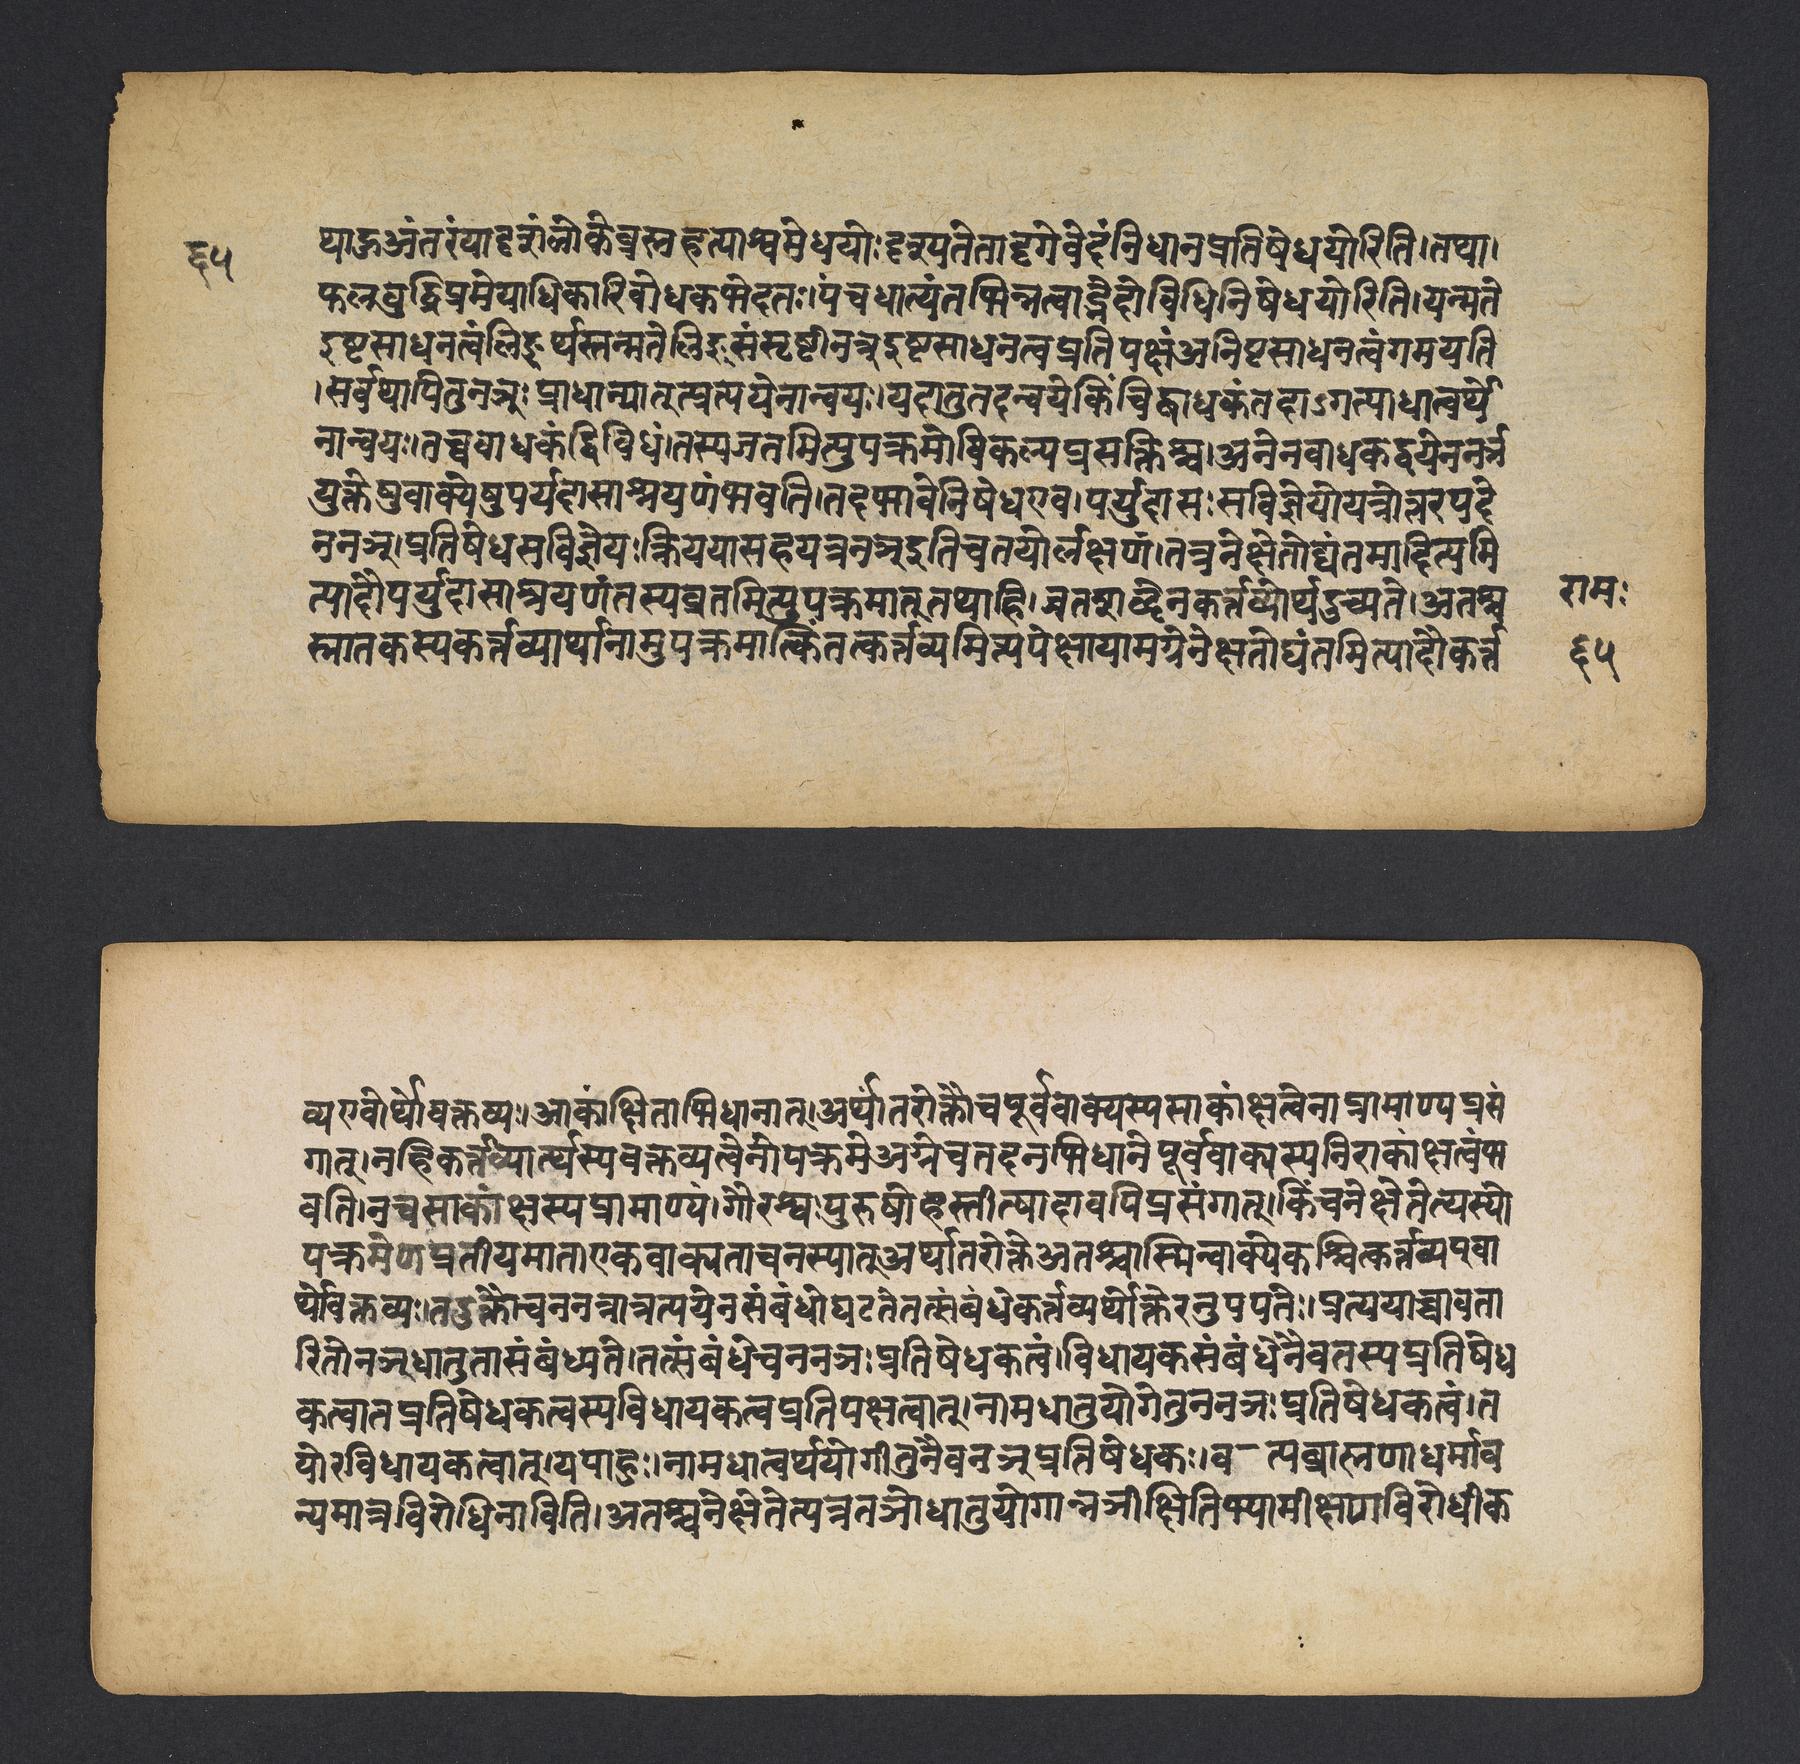 ६५
थाहुअंतरंयादृशंलोकेब्रह्महत्याश्वमेधयोः।दृश्यतेतादृगेवेदंनिधानप्रतिषेधयोरिति।तथा।
फलबुद्धिप्रमेयाधिकारिबोधकभेदतः।पंचधात्यंतभिन्नत्वाद्भेदोविधिनिषेधयोरिति।यन्मते
इष्टसाधनत्वंलिङर्थस्तन्मतेलिङ्संसृष्टोनञ्इष्टसाधनत्वप्रतिपक्षंअनिष्टसाधनत्वंगमयति
।सर्वथापितुनञः प्राधान्यात्प्रत्ययेनान्वयः।यदातुतदन्वयेकिंचिद्बाधकंतदाऽगत्याधात्वर्थे
नान्वयः।तच्चबाधकंद्विविधं।तस्यव्रतमित्युपक्रमोविकल्पप्रसक्तिश्च।अनेनबाधकद्वयेननर्ञ
युक्तेषुवाक्येषुपर्यदासाश्रयणंभवति।तदभावेनिषेधएव।पर्युदासः सविज्ञेयोयत्रोत्तरपदे
ननञ्।प्रतिषेधसविज्ञेयः क्रिययासहयत्रनञ्इतिचतयोर्लक्षणं।तत्रनेक्षेतोद्यंतमादित्यमि
त्यादौपर्युदासाश्रयणंतस्यव्रतमित्युपक्रमात्तथाहि।व्रतशब्देनकर्त्तव्योर्थउच्यते।अतश्च
राम:
स्नातकस्यकर्त्तव्यार्थानामुपक्रमात्किंतत्कर्त्तव्यमित्यपेक्षायामग्रेनेक्षतोद्यंतमित्यादौकर्त्त
६५
व्यएवोर्थोवक्तव्यः।आकांक्षिताभिधानात्।अर्थांतरोक्तौचपूर्ववाक्यस्यसाकांक्षत्वेनाप्रामाण्यप्रसं
गात्।नहिकर्त्तव्यार्त्थस्यवक्तव्यत्वेनोपक्रमेअग्रेचतदनभिधानेपूर्ववाक्यस्यनिराकांक्षत्वंभ
वति।नचसाकांक्षस्यप्रामाण्यं।गौरश्वःपुरुषोहस्तीत्यादावपिप्रसंगात्।किंचनेक्षेतेत्यस्यो
पक्रमेणप्रतीयमाताएकवाक्यताचनस्यात्अर्थांतरोक्तेअतश्चास्मिन्वाक्येकश्चित्कर्त्तव्यएवा
र्थोवक्तव्यः।तदुक्तौचननञान्रत्ययेनसंबंधोघटतेतत्संबंधेकर्त्तव्यर्थोक्तेरनुपपतेः।प्रत्ययाच्चावता
रितोनञ्धातुतासंबंध्यते।तत्संबंधेचननञः प्रतिषेधकत्वं।विधायकसंबंधेनैवतस्यप्रतिषेध
कत्वातप्रतिषेधकत्वस्यविधायकत्वप्रतिपक्षत्वात्।नामधातुयोगेतुननञः प्रतिषेधकत्वं।त
योरविधायकत्वात्।यथाहुः।नामधात्वर्थयोगीतुनैवनञ्प्रतिषेधकः।व-त्यब्राह्मणाधर्माव
न्यमात्रविरोधिनाविति।अतश्चनेक्षेतेत्यत्रतञोधातुयोगान्नञीक्षितिभ्यामीक्षणविरोधीक